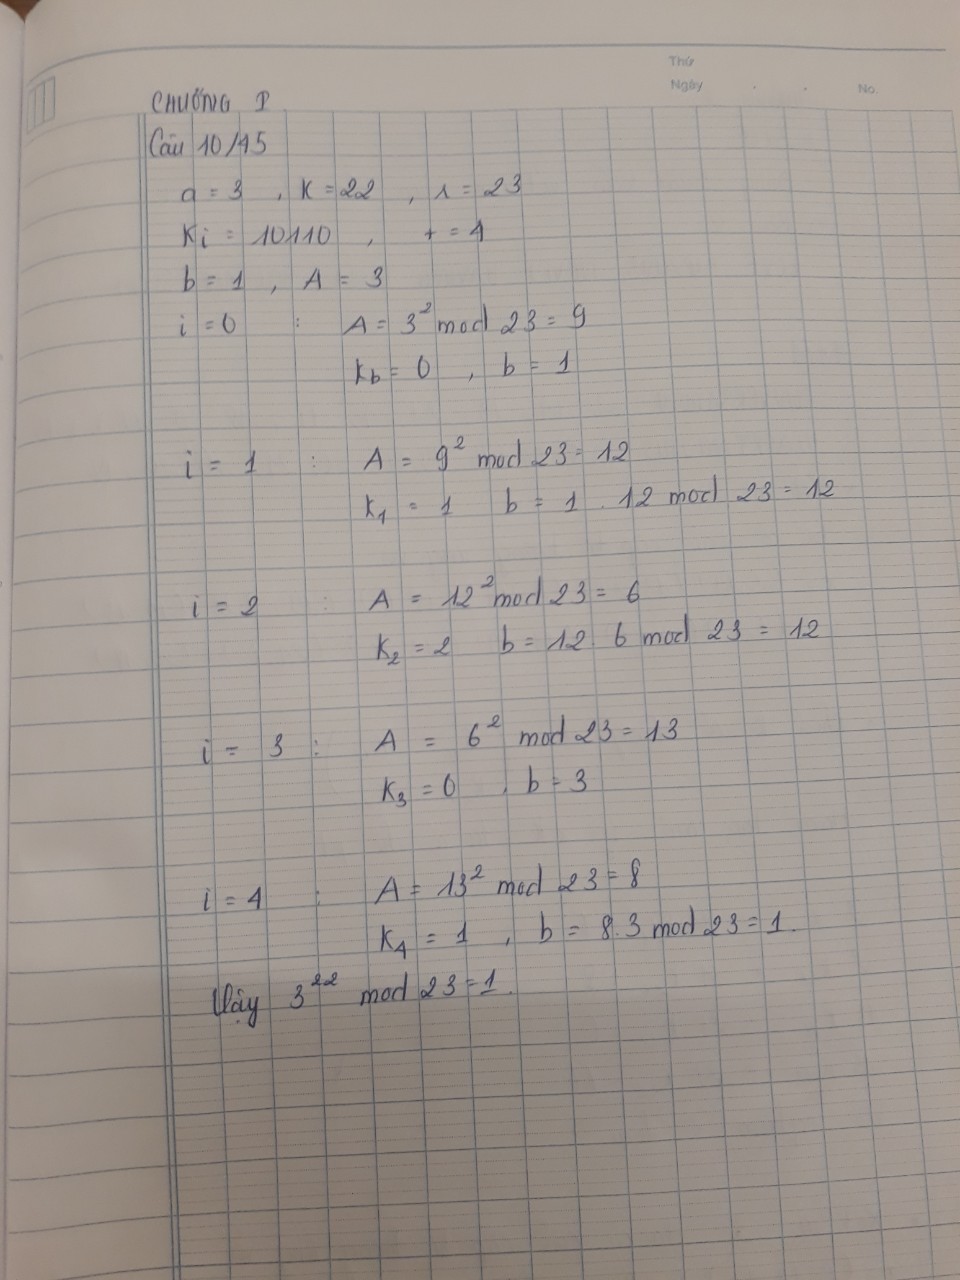 Thứ
Ngày . . No.
CHƯƠNG I
Câu 10/15
a = 3 , K = 22 , n = 23
Ki = 10110 , t = 4
b = 1 , A = 3
i = 0 : A = 3² mod 23 = 9
Kb = 0 , b = 1
i = 1 : A = 9² mod 23 = 12
K₁ = 1 b = 1 . 12 mod 23 = 12
i = 2 : A = 12² mod 23 = 6
K₂ = 2 b = 12 . 6 mod 23 = 12
i = 3 : A = 6² mod 23 = 13
K₃ = 0 , b = 3
i = 4 : A = 13² mod 23 = 8
K₄ = 1 , b = 8.3 mod 23 = 1.
Vậy 3²² mod 23 = 1.